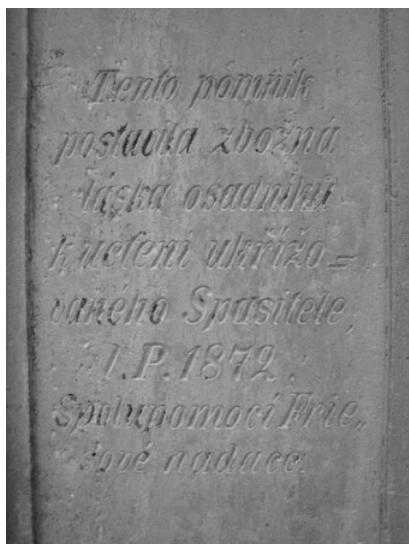 Tento pomník
postavila zbožná
láska osadníků
k uctení ukřižo=
vaného Spasitele,
L.P. 1872.
Spolupomocí Frie„
nadace.